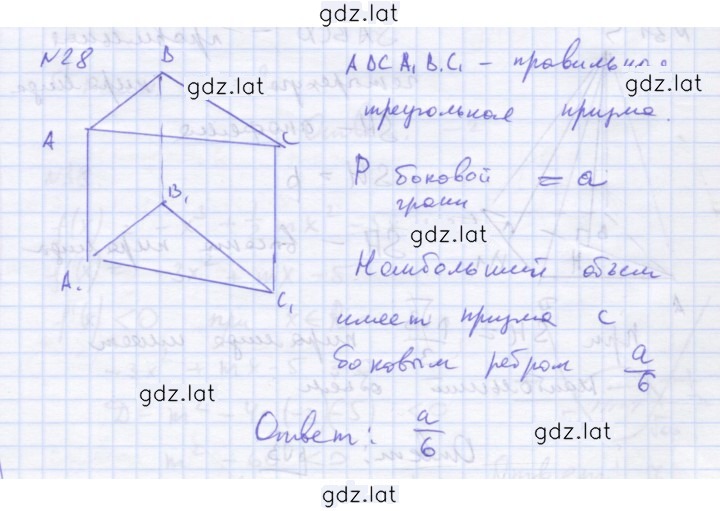 gdz.lat
№28
B
ABCA₁B₁C₁ - правильная
gdz.lat
gdz.lat
треугольная призма.
A
C
P боковой грани = a
B₁
gdz.lat
Наибольший объем
A₁
C₁
имеет призма с
боковым ребром a/6
gdz.lat
Ответ: a/6
gdz.lat
gdz.lat